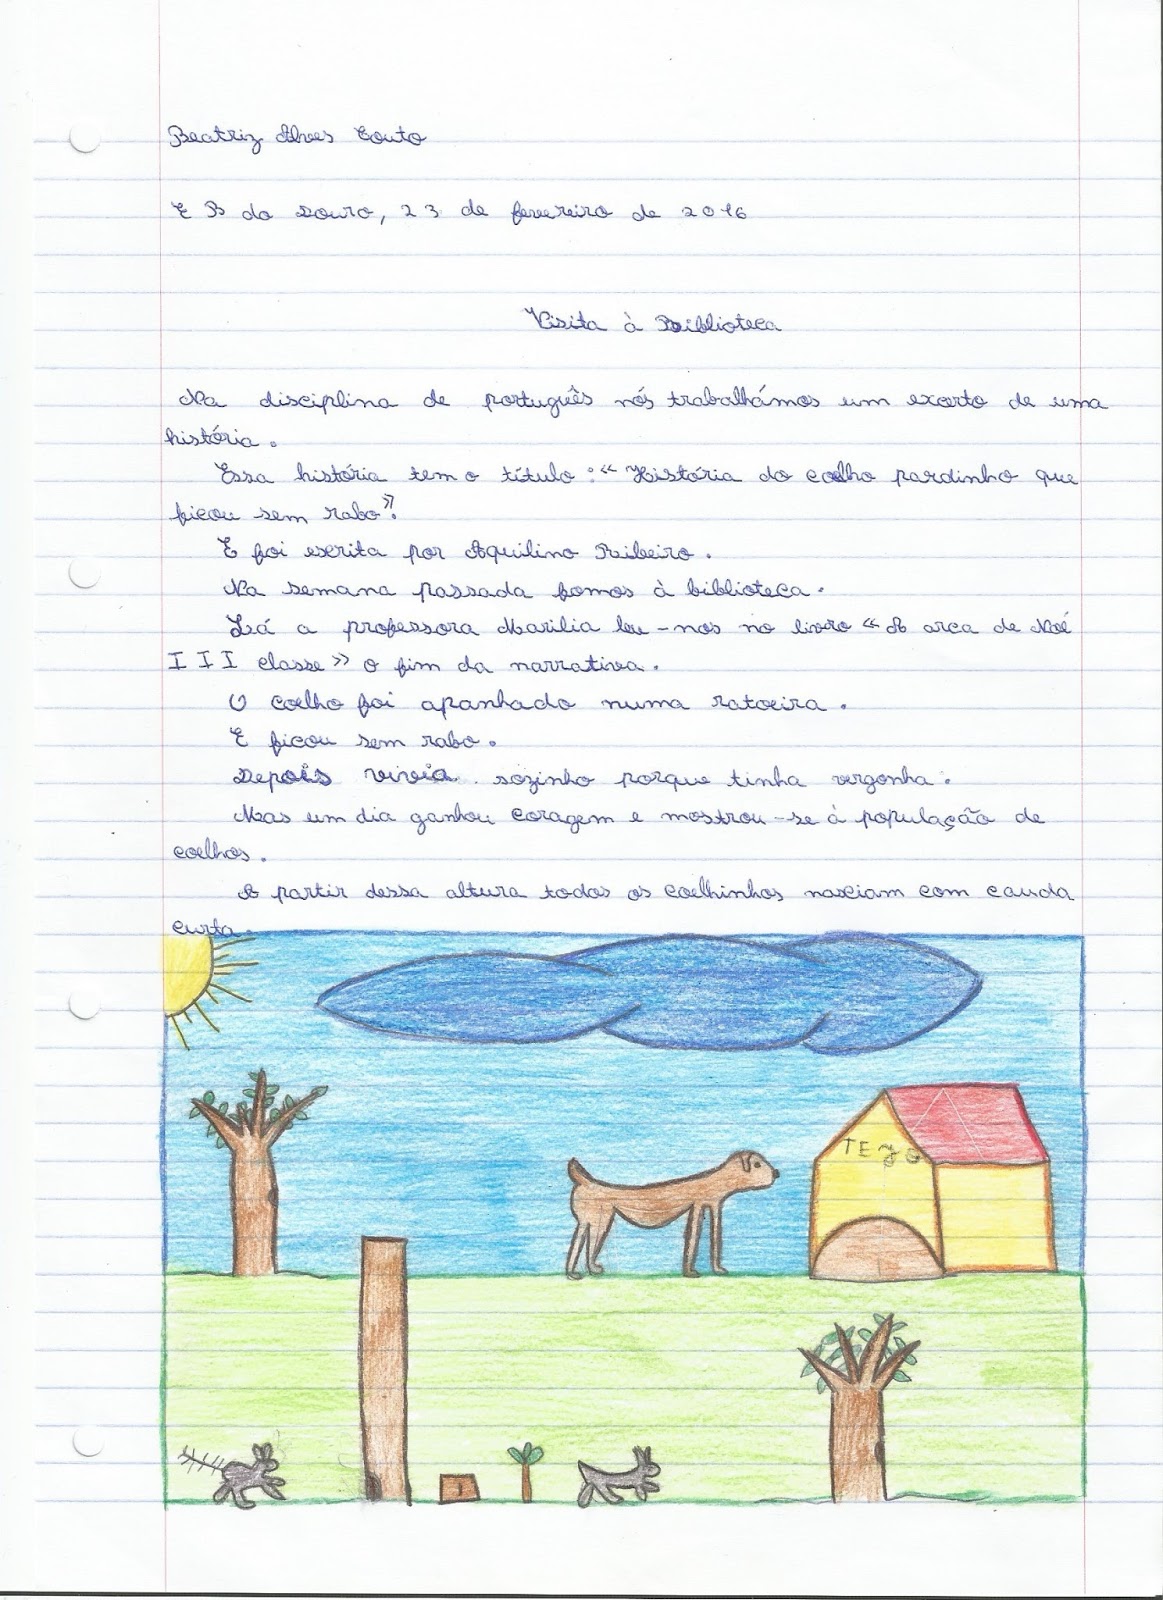 Beatriz Alves Couto
E B do Douro, 23 de fevereiro de 2016
Visita à Biblioteca
Na disciplina de português nós trabalhámos um excerto de uma
história.
Essa história tem o título: "História do coelho pardinho que
ficou sem rabo".
E foi escrita por Aquilino Ribeiro.
Na semana passada fomos à biblioteca.
Lá a professora Marilia leu-nos no livro « A arca de Noé
III classe» o fim da narrativa.
O coelho foi apanhado numa ratoeira.
E ficou sem rabo.
Depois vivia sozinho porque tinha vergonha.
Mas um dia ganhou coragem e mostrou-se à população de
coelhos.
A partir dessa altura todos os coelhinhos nasciam com cauda
curta.